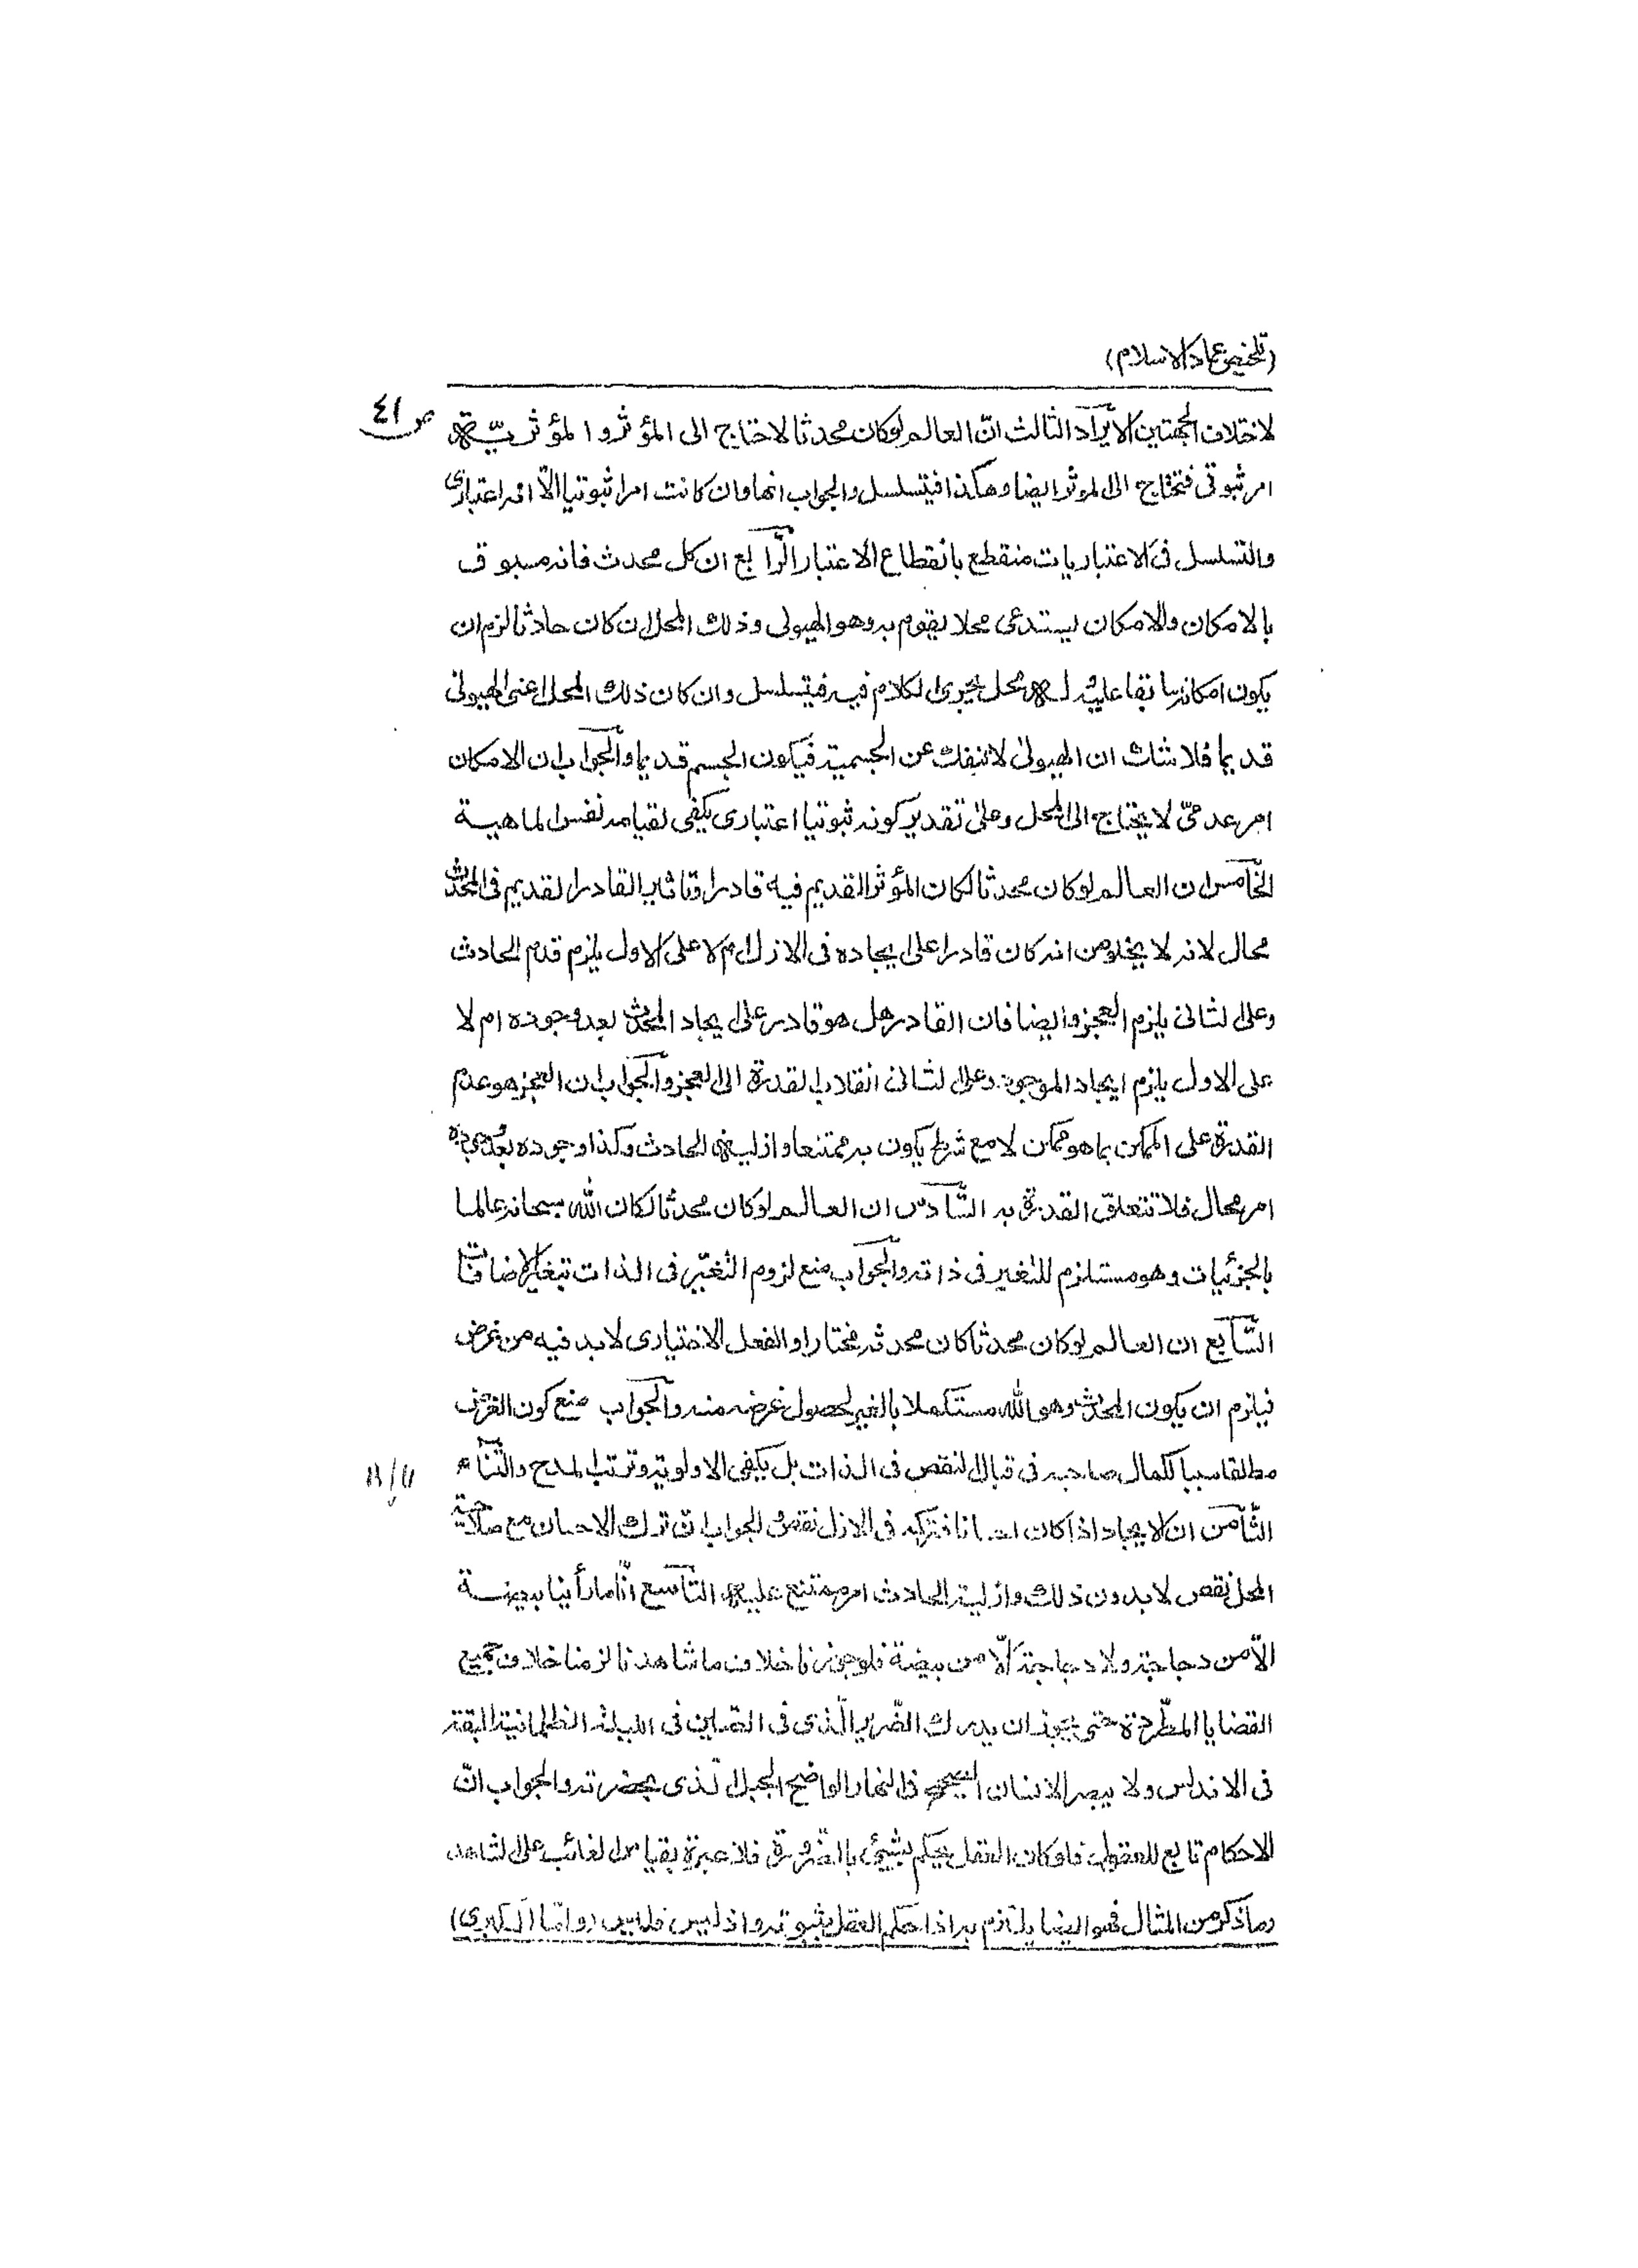 (تلخيص عماد الاسلام)
ص ٤١
لاختلاف الجهتين الايراد الثالث انّ العالم لوكان محدثا لاحتاج الى المؤثر والمؤثريّة
امر ثبوتى فتحتاج الى المؤثر ايضا وهكذا فيتسلسل والجواب انها وان كانت امرا ثبوتيا الّا انه اعتبارى
والتسلسل فى الاعتباريات منقطع بانقطاع الاعتبار الرّابع ان كل محدث فانه مسبوق
بالامكان والامكان يستدعى محلا يقوم به وهو الهيولى وذلك المحل ان كان حادثا لزم ان
يكون امكانه سابقا عليه محل يجرى الكلام فيه فيتسلسل وان كان ذلك المحل اعنى الهيولى
قديما فلا شك ان الهيولى لا تنفك عن الجسمية فيكون الجسم قديما والجواب ان الامكان
امر عدمىّ لا يحتاج الى المحل وعلى تقدير كونه ثبوتيا اعتبارى يكفى لقيامه نفس الماهية
الخامس ان العالم لوكان محدثا لكان المؤثر القديم فيه قادرا وتاثير القادر القديم فى المحدث
محال لانه لا يخلو من انه كان قادرا على ايجاده فى الازل ام لا على الاول يلزم قدم الحادث
وعلى الثانى يلزم العجز وايضا فان القادر هل هو قادر على ايجاد المحدث بعد وجوده ام لا
على الاول يلزم ايجاد الموجود وعلى الثانى انقلاب القدرة الى العجز والجواب ان العجز هو عدم
القدرة على الممكن بما هو ممكن لا مع شرط يكون به ممتنعا وازلية الحادث وكذا وجوده بعد وجوده
امر محال فلا تتعلّق القدرة به السّادس ان العالم لوكان محدثا لكان الله سبحانه عالما
بالجزئيات وهو مستلزم للتغير فى ذاته والجواب منع لزوم التغيّر فى الذات بتغير الاضافات
السّابع ان العالم لوكان محدثا كان محدثه مختارا والفعل الاختيارى لا بد فيه من غرض
فيلزم ان يكون المحدث وهو الله مستكملا بالغير لحصول غرضه منه والجواب منع كون الغرض
مطلقا سببا لكمال صاحبه فى قبال النقص فى الذات بل يكفى الاولوية وترتب المدح والثناء
١١/١١
الثّامن ان الايجاد اذا كان احسانا فتركه فى الازل نقص والجواب ان ترك الاحسان مع صلاحية
المحل نقص لا بدون ذلك وازلية الحادث امر ممتنع عليه التاسع انّا ما رأينا بيضة
الّا من دجاجة ولا دجاجة الّا من بيضة فلو جوزنا خلاف ما شاهدنا لزمنا خلاف جميع
القضايا المطّردة حتى يجوز ان يدرك الضّرير الّذى فى الصّين فى الليلة الظلمانية البقة
فى الاندلس ولا يبصر الانسان الصحيح فى النهار الواضح الجبل الّذى بحضرته والجواب انّ
الاحكام تابع للعقول فلو كان العقل يحكم بشيئ بالضّرورة فلا عبرة بقياس الغائب على الشاهد
وما ذكر من المثال فهو ايضا يلتزم به اذا حكم العقل بثبوته واذ ليس فليس (وامّا الكبرى)